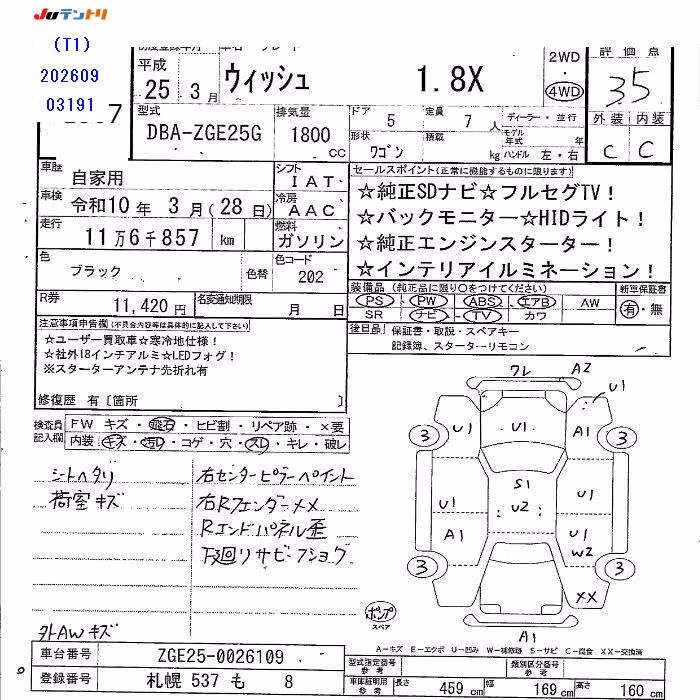 Juテントリ
(T1)
202609
03191
7
初度登録年月 車名・グレード
平成 25 3月 ウィッシュ 1.8X
2WD
4WD
評価点
3.5
外装 内装
C C
型式 DBA-ZGE25G
排気量 1800 CC
ドア 5
定員 7 人
ディーラー・並行
形状 ワゴン
積載 kg
モデル年式 年
ハンドル 左・右
車歴 自家用
シフト IAT
車検 令和10年 3月(28日)
冷房 AAC
走行 11万6千857 km
燃料 ガソリン
色 ブラック
色替
色コード 202
R券 11,420 円
名変通知期限 月 日
セールスポイント(正常に機能するものに限ります)
☆純正SDナビ☆フルセグTV!
☆バックモニター☆HIDライト!
☆純正エンジンスターター!
☆インテリアイルミネーション!
装備品 (純正品に限り○をつけてください)
新車保証書
PS PW ABS エアB AW
有・無
SR ナビ TV カワ
後日品 保証書・取説・スペアキー
記録簿、スターターリモコン
注意事項申告欄(不具合内容等は具体的に記入して下さい)
☆ユーザー買取車☆寒冷地仕様!
☆社外18インチアルミ☆LEDフォグ!
※スターターアンテナ先折れ有
修復歴 有〔箇所 〕
検査員記入欄
FW キズ・飛石・ヒビ割・リペア跡・×要
内装・キズ・汚レ・コゲ・穴・スレ・キレ・破レ
シートヘタリ
荷室キズ
右センターピラーペイント
右Rフェンダーメメ
Rエンドパネル歪
下廻リサビ・フショク
外AWキズ
ワレ A2
U1
U1 U1 A1
3 3
S1
U2
U1 U1
A1 U1
W2
3 3
XX
A1
ポンプ
スペア
A-キズ E-エクボ U-凹み W-補修跡 S-サビ C-腐食 XX-交換済
車台番号 ZGE25-0026109
登録番号 札幌 537 も 8
型式指定番号 参考
類別区分番号 参考
車庫証明用 参考
長さ 459 cm
幅 169 cm
高さ 160 cm